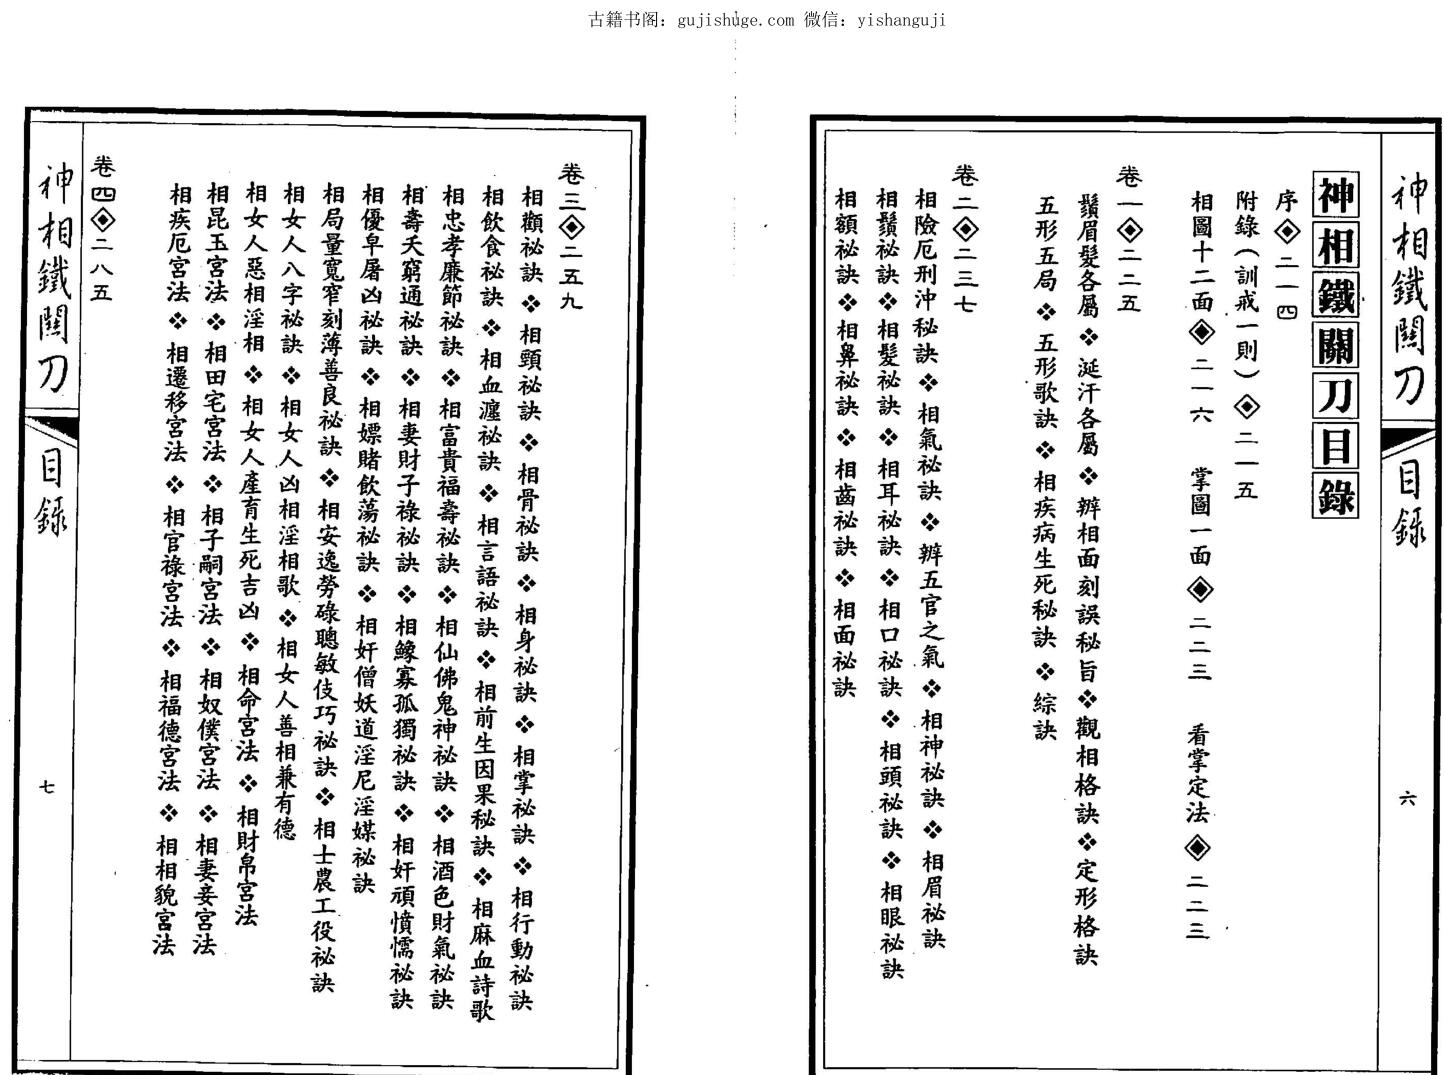 古籍书阁：gujishuge.com 微信：yishanguji
神相鐵關刀 目錄 六
神相鐵關刀目錄
序◈二一四
附錄（訓戒一則）◈二一五
相圖十二面◈二一六 掌圖一面◈二二三 看掌定法◈二二三
卷一◈二二五
鬚眉髮各屬❖涎汗各屬❖辨相面刻誤秘旨❖觀相格訣❖定形格訣
五形五局❖五形歌訣❖相疾病生死秘訣❖綜訣
卷二◈二三七
相險厄刑沖秘訣❖相氣祕訣❖辨五官之氣❖相神祕訣❖相眉祕訣
相鬚祕訣❖相髮祕訣❖相耳祕訣❖相口祕訣❖相頭祕訣❖相眼祕訣
相額祕訣❖相鼻祕訣❖相齒祕訣❖相面祕訣
卷三◈二五九
相顴祕訣❖相頸祕訣❖相骨祕訣❖相身祕訣❖相掌祕訣❖相行動祕訣
相飲食祕訣❖相血瀍祕訣❖相言語祕訣❖相前生因果秘訣❖相麻血詩歌
相忠孝廉節祕訣❖相富貴福壽祕訣❖相仙佛鬼神祕訣❖相酒色財氣祕訣
相壽夭窮通祕訣❖相妻財子祿祕訣❖相鰥寡孤獨祕訣❖相奸頑憤懦祕訣
相優皁屠凶祕訣❖相嫖賭飲蕩祕訣❖相奸僧妖道淫尼淫媒祕訣
相局量寬窄刻薄善良祕訣❖相安逸勞碌聰敏伎巧祕訣❖相士農工役祕訣
相女人八字祕訣❖相女人凶相淫相歌❖相女人善相兼有德
相女人惡相淫相❖相女人產育生死吉凶❖相命宮法❖相財帛宮法
相昆玉宮法❖相田宅宮法❖相子嗣宮法❖相奴僕宮法❖相妻妾宮法
相疾厄宮法❖相遷移宮法❖相官祿宮法❖相福德宮法❖相相貌宮法
卷四◈二八五
神相鐵關刀 目錄 七